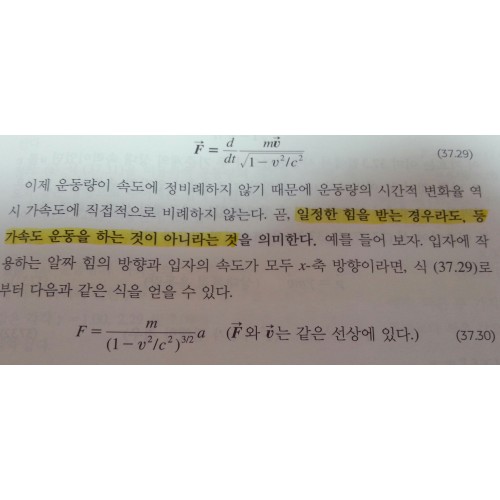 F⃗ = d/dt mv⃗/√(1 − v²/c²) (37.29)
이제 운동량이 속도에 정비례하지 않기 때문에 운동량의 시간적 변화율 역
시 가속도에 직접적으로 비례하지 않는다. 곧, 일정한 힘을 받는 경우라도, 등
가속도 운동을 하는 것이 아니라는 것을 의미한다. 예를 들어 보자. 입자에 작
용하는 알짜 힘의 방향과 입자의 속도가 모두 x-축 방향이라면, 식 (37.29)로
부터 다음과 같은 식을 얻을 수 있다.
F = m/(1 − v²/c²)^3/2 a (F⃗와 v⃗는 같은 선상에 있다.) (37.30)